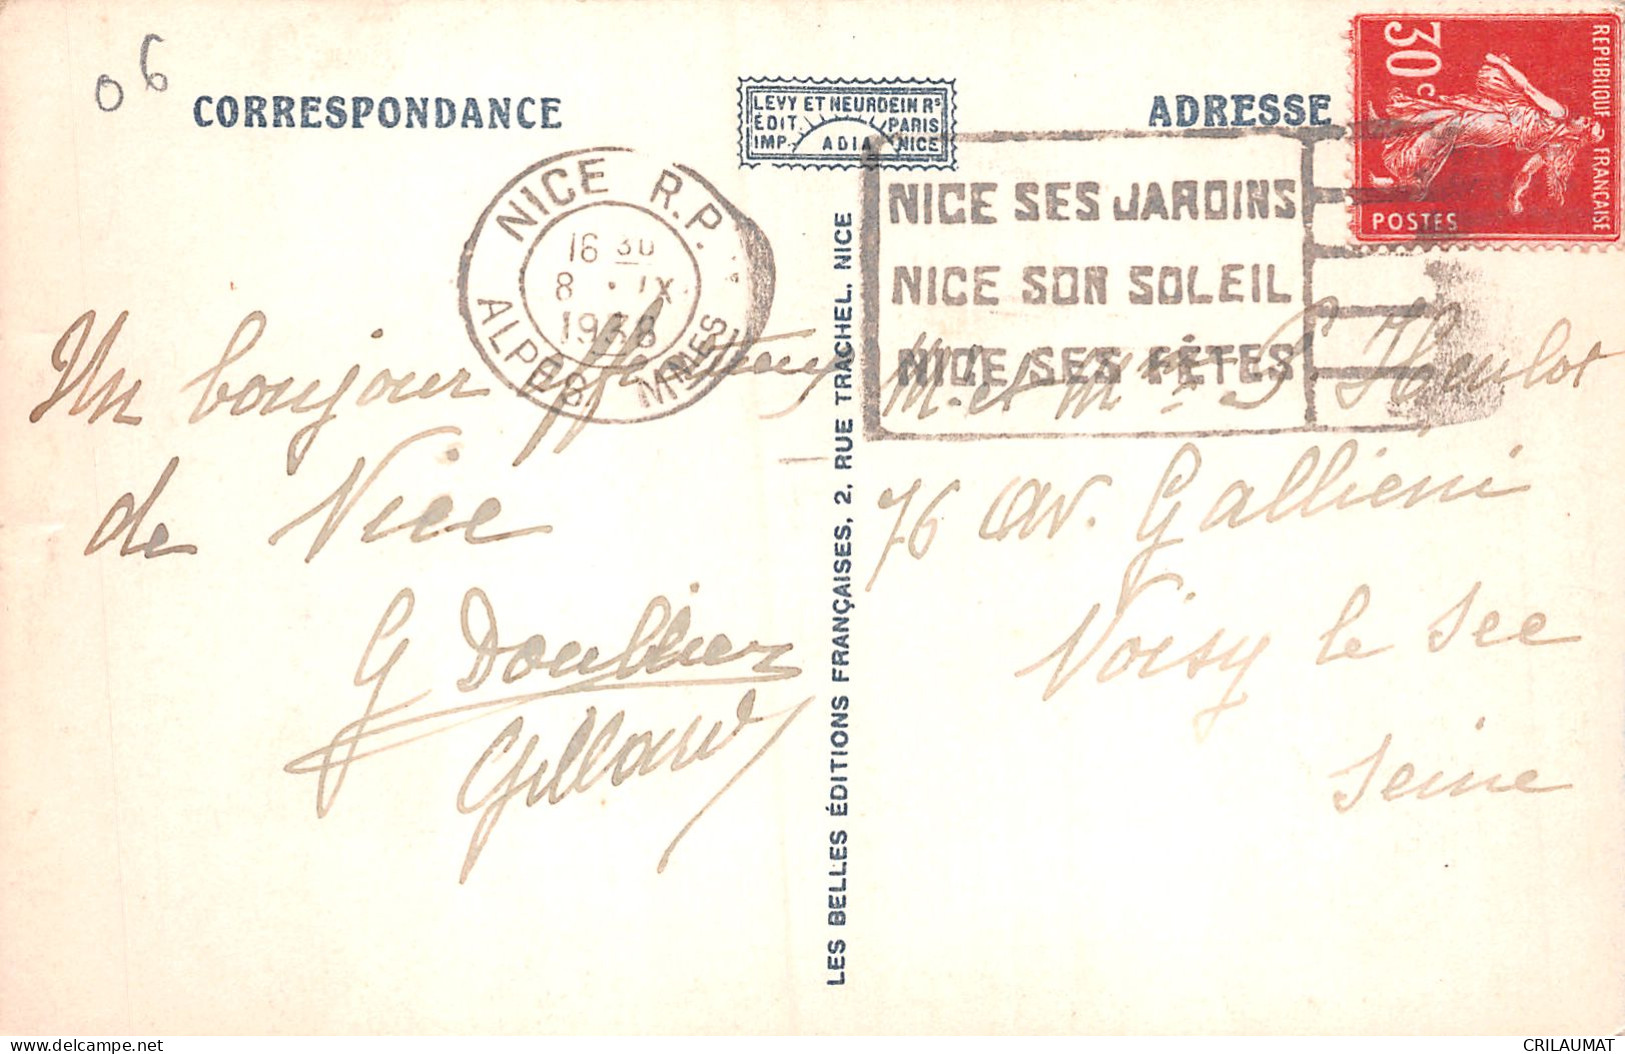 06
CORRESPONDANCE
LEVY ET NEURDEIN Rs
ÉDIT. PARIS
IMP. ADIA NICE
ADRESSE
30c
REPUBLIQUE FRANÇAISE
POSTES
NICE R.P.
16 30
8 · IX
1938
ALPES MMES
NICE SES JARDINS
NICE SON SOLEIL
NICE SES FÊTES
Un bonjour affectueux
de Nice
G Doublier
Gillard
LES BELLES ÉDITIONS FRANÇAISES, 2, RUE TRACHEL, NICE
Mr et Mme
76 av. Gallieni
Noisy le See
Seine
CRILAUMAT